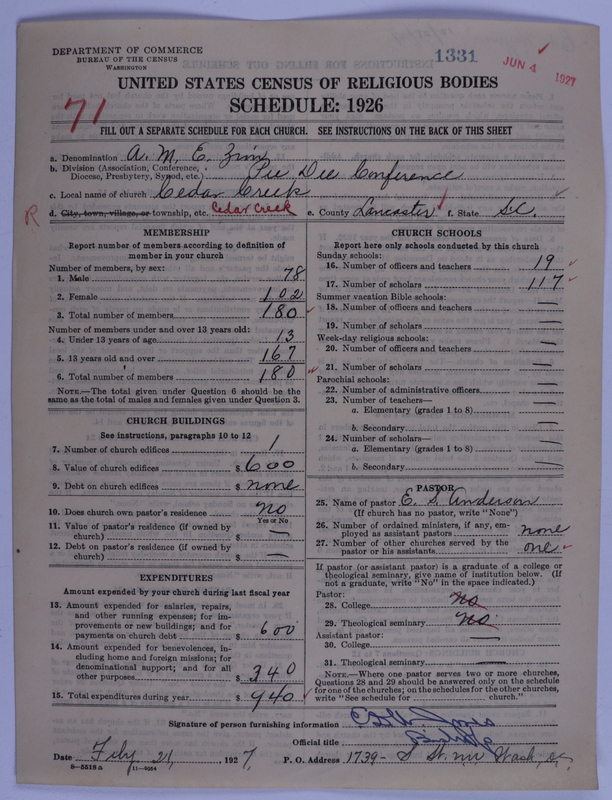 DEPARTMENT OF COMMERCE
BUREAU OF THE CENSUS
WASHINGTON
1331
JUN 4 1927
UNITED STATES CENSUS OF RELIGIOUS BODIES
SCHEDULE: 1926
71
FILL OUT A SEPARATE SCHEDULE FOR EACH CHURCH. SEE INSTRUCTIONS ON THE BACK OF THIS SHEET
a. Denomination A. M. E. Zion
b. Division (Association, Conference, Diocese, Presbytery, Synod, etc.) Pee Dee Conference
c. Local name of church Cedar Creek
R d. City, town, village, or township, etc. Cedar Creek e. County Lancaster f. State S.C.
MEMBERSHIP
Report number of members according to definition of member in your church
Number of members, by sex:
1. Male 78
2. Female 102
3. Total number of members 180
Number of members under and over 13 years old:
4. Under 13 years of age 13
5. 13 years old and over 167
6. Total number of members 180
NOTE.—The total given under Question 6 should be the same as the total of males and females given under Question 3.
CHURCH BUILDINGS
See instructions, paragraphs 10 to 12
7. Number of church edifices 1
8. Value of church edifices $ 600
9. Debt on church edifices $ none
10. Does church own pastor's residence? no
Yes or No
11. Value of pastor's residence (if owned by church) $ —
12. Debt on pastor's residence (if owned by church) $ —
EXPENDITURES
Amount expended by your church during last fiscal year
13. Amount expended for salaries, repairs, and other running expenses; for improvements or new buildings; and for payments on church debt $ 600
14. Amount expended for benevolences, including home and foreign missions; for denominational support; and for all other purposes $ 340
15. Total expenditures during year $ 940
CHURCH SCHOOLS
Report here only schools conducted by this church
Sunday schools:
16. Number of officers and teachers 19
17. Number of scholars 117
Summer vacation Bible schools:
18. Number of officers and teachers —
19. Number of scholars —
Week-day religious schools:
20. Number of officers and teachers —
21. Number of scholars —
Parochial schools:
22. Number of administrative officers —
23. Number of teachers—
a. Elementary (grades 1 to 8) —
b. Secondary —
24. Number of scholars—
a. Elementary (grades 1 to 8) —
b. Secondary —
PASTOR
25. Name of pastor E. S. Anderson
(If church has no pastor, write "None")
26. Number of ordained ministers, if any, employed as assistant pastors none
27. Number of other churches served by the pastor or his assistants one
If pastor (or assistant pastor) is a graduate of a college or theological seminary, give name of institution below. (If not a graduate, write "No" in the space indicated.)
Pastor:
28. College no
29. Theological seminary no
Assistant pastor: —
30. College
31. Theological seminary —
NOTE.—Where one pastor serves two or more churches, Questions 28 and 29 should be answered only on the schedule for one of the churches; on the schedules for the other churches, write "See schedule for church."
Signature of person furnishing information Jones
Official title Bishop
Date 21, 1927 P. O. Address 1739- S St. NW Wash, DC
8—5518a 11—9054